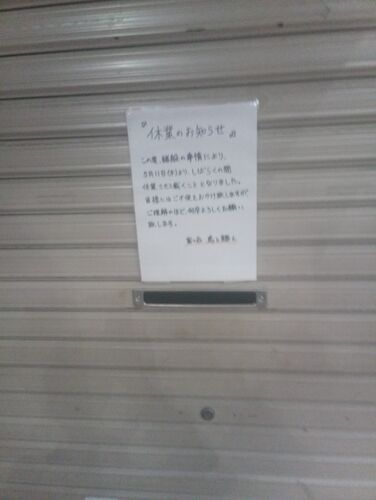 『休業のお知らせ』
この度、諸般の事情により、
5月11日(水)より、しばらくの間
休業させて戴くこととなりました。
皆様にはご不便をおかけ致しますが
ご理解のほど、何卒よろしくお願い
致します。